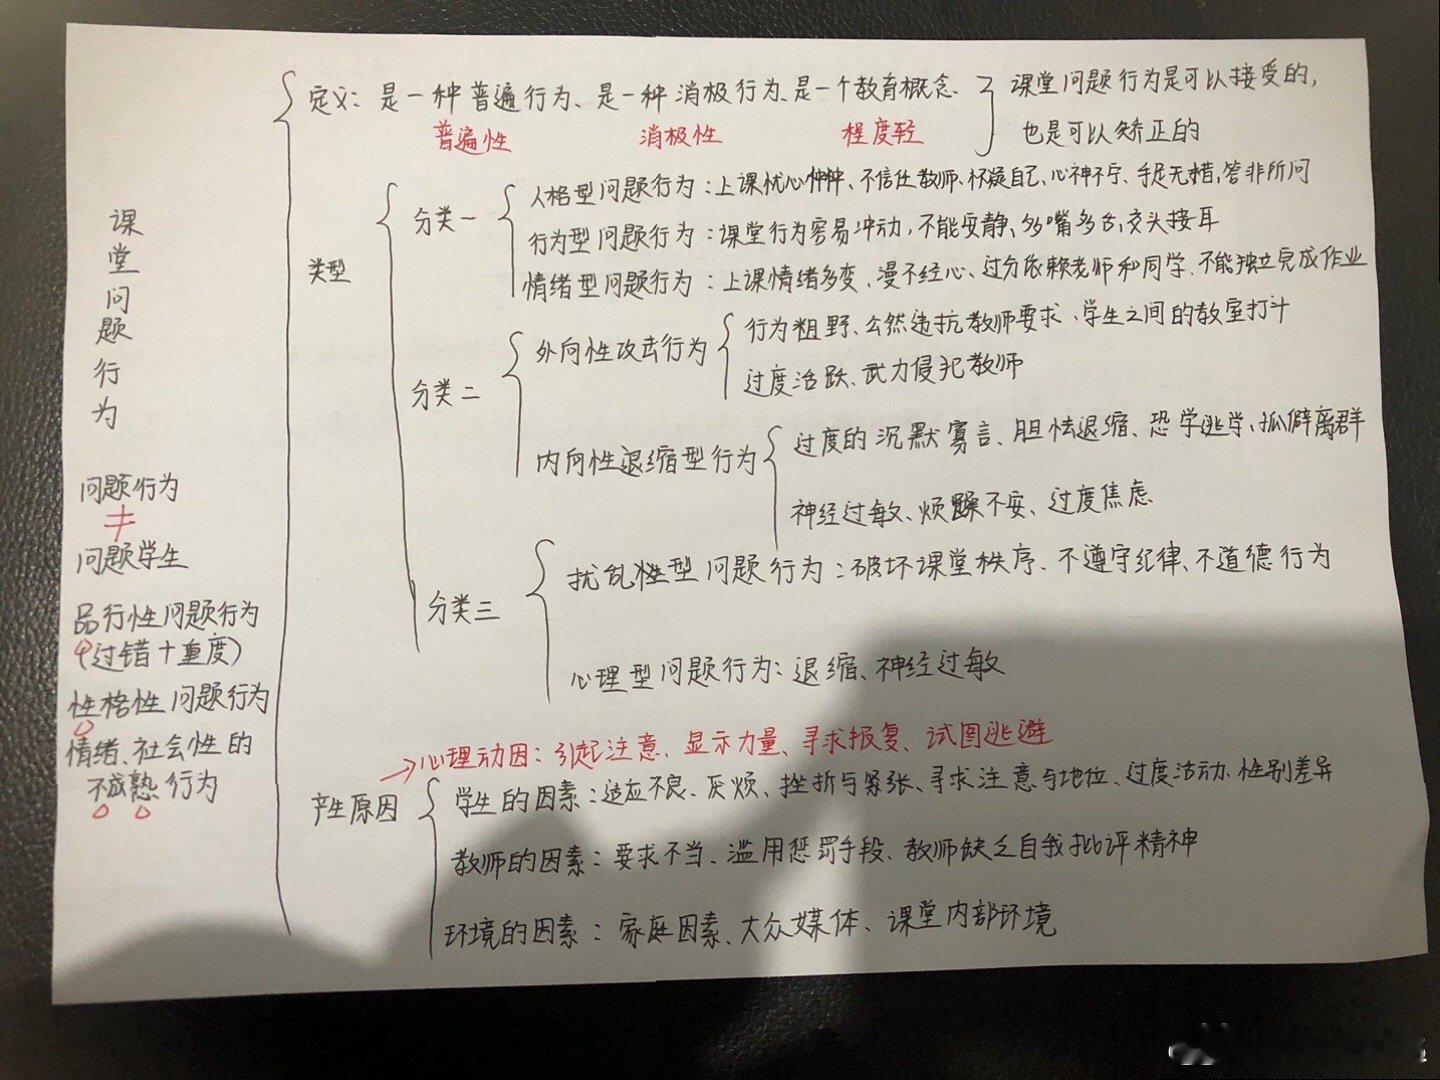 课堂问题行为
问题行为
≠
问题学生
品行性问题行为
(过错+重度)
性格性问题行为
情绪、社会性的
不成熟行为
定义：是一种普遍行为、是一种消极行为、是一个教育概念.
普遍性 消极性 程度轻
课堂问题行为是可以接受的,
也是可以矫正的
类型
分类一
人格型问题行为：上课忧心忡忡、不信任教师、怀疑自己、心神不宁、手足无措,答非所问
行为型问题行为：课堂行为容易冲动,不能安静、多嘴多舌,交头接耳
情绪型问题行为：上课情绪多变、漫不经心、过分依赖老师和同学、不能独立完成作业
分类二
外向性攻击行为
行为粗野、公然违抗教师要求、学生之间的教室打斗
过度活跃、武力侵犯教师
内向性退缩型行为
过度的沉默寡言、胆怯退缩、恐学逃学、孤僻离群
神经过敏、烦躁不安、过度焦虑
分类三
扰乱性型问题行为：破坏课堂秩序、不遵守纪律、不道德行为
心理型问题行为：退缩、神经过敏
产生原因
→心理动因：引起注意、显示力量、寻求报复、试图逃避
学生的因素：适应不良、厌烦、挫折与紧张、寻求注意与地位、过度活动、性别差异
教师的因素：要求不当、滥用惩罚手段、教师缺乏自我批评精神
环境的因素：家庭因素、大众媒体、课堂内部环境